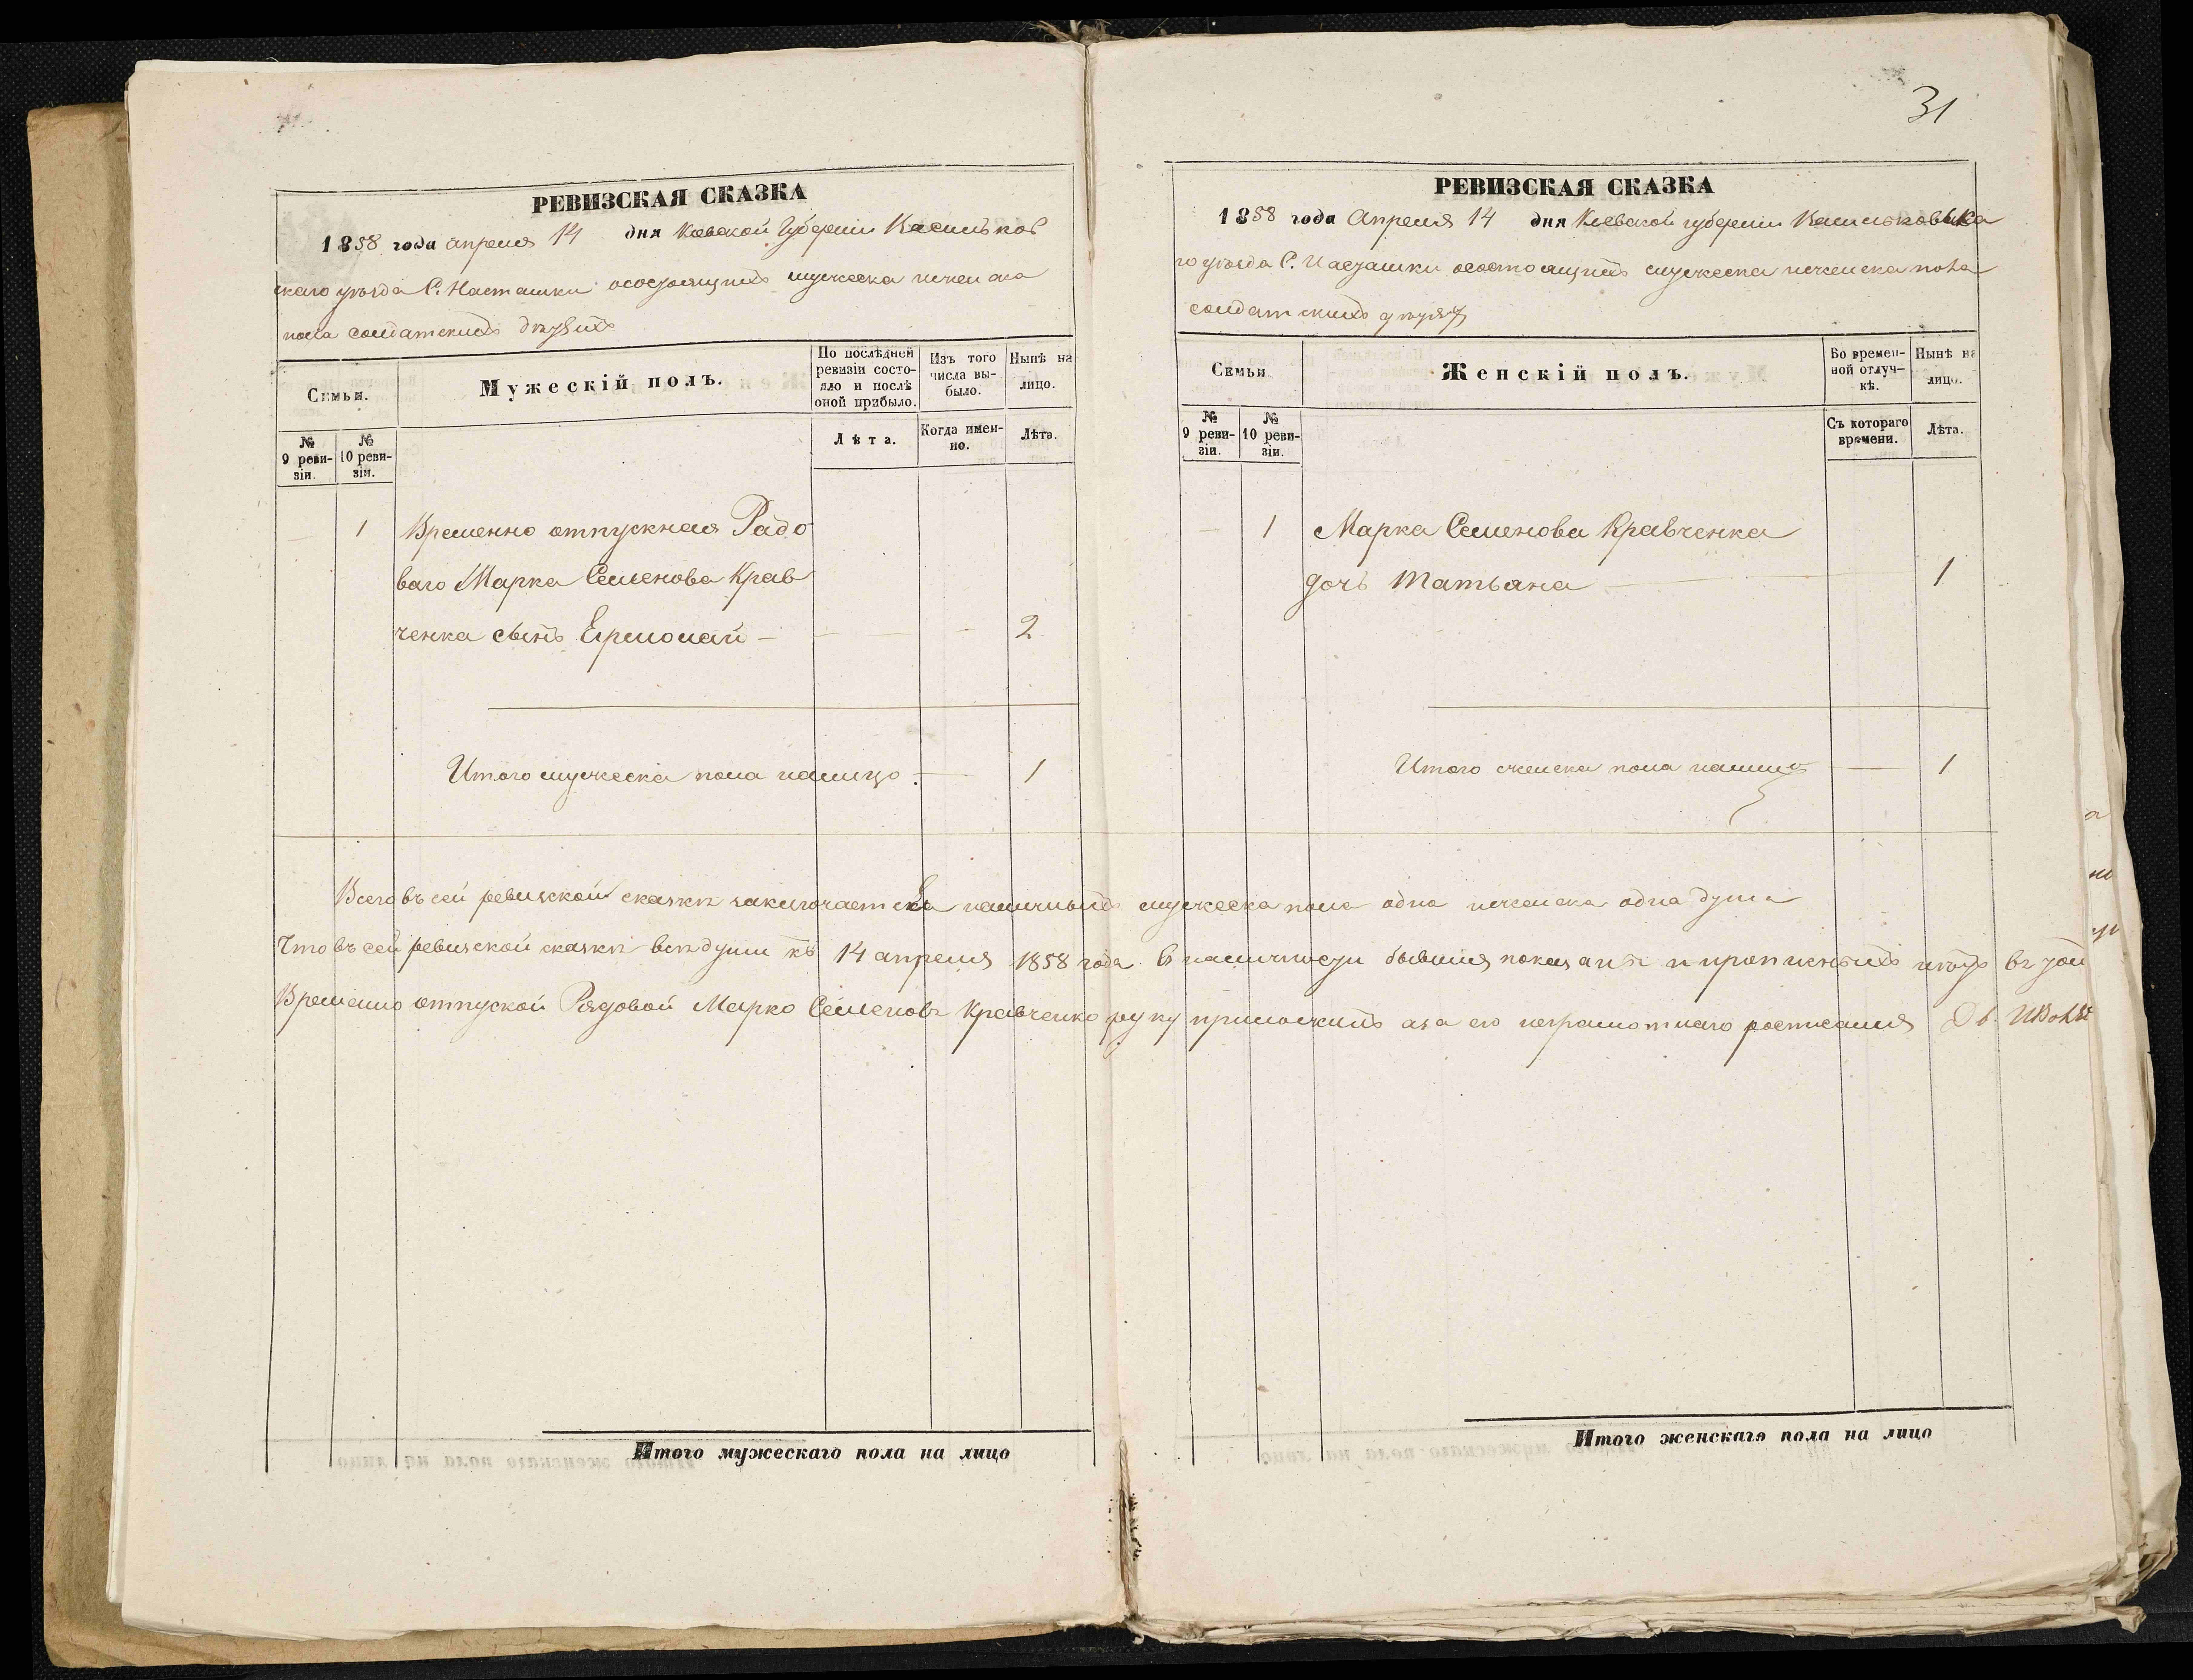 31
РЕВИЗСКАЯ СКАЗКА
1858 года апреля 14 дня Кевской Губернии Васильков
скаго уезда С. Насташки осостоящихъ мужеска иженска
пола солдатскихъ дѣтѣихъ
Семьи.
Мужескій полъ.
По послѣдней ревизіи состояло и послѣ оной прибыло.
Изъ того числа выбыло.
Нынѣ на лицо.
№ 9 ревизіи.
№ 10 ревизіи.
Лѣта.
Когда именно.
Лѣта.
— 1 Временно отпускная Радо
ваго Марка Семенова Крав
ченка сынъ Ермолай — — — — 2
Итого мужеска пола налицо — 1
РЕВИЗСКАЯ СКАЗКА
1858 года Апреля 14 дня Киевской губернии Васильковска
го уезда С. Насташки осостоящихъ мужеска иженска пола
солдатскихъ
Семьи
Женскій полъ.
Во временной отлучкѣ.
Нынѣ на лицо.
№ 9 ревизіи.
№ 10 ревизіи.
Съ котораго времени.
Лѣта.
— 1 Марка Семенова Кравченка
дочь Татьяна — 1
Итого женска пола налицо — 1
Всего въ сей ревизской сказки заключается наличныхъ мужеска пола одна иженска одна душа
Что въ сей ревизской сказки всѣ души къ 14 апреля 1858 года в наличности бывшия показаны и
Временно отпуской Рядовой Марко Семеновъ Кравченко руку приложилъ аза его неграмотнаго росписался
Итого мужескаго пола на лицо
Итого женскаго пола на лицо